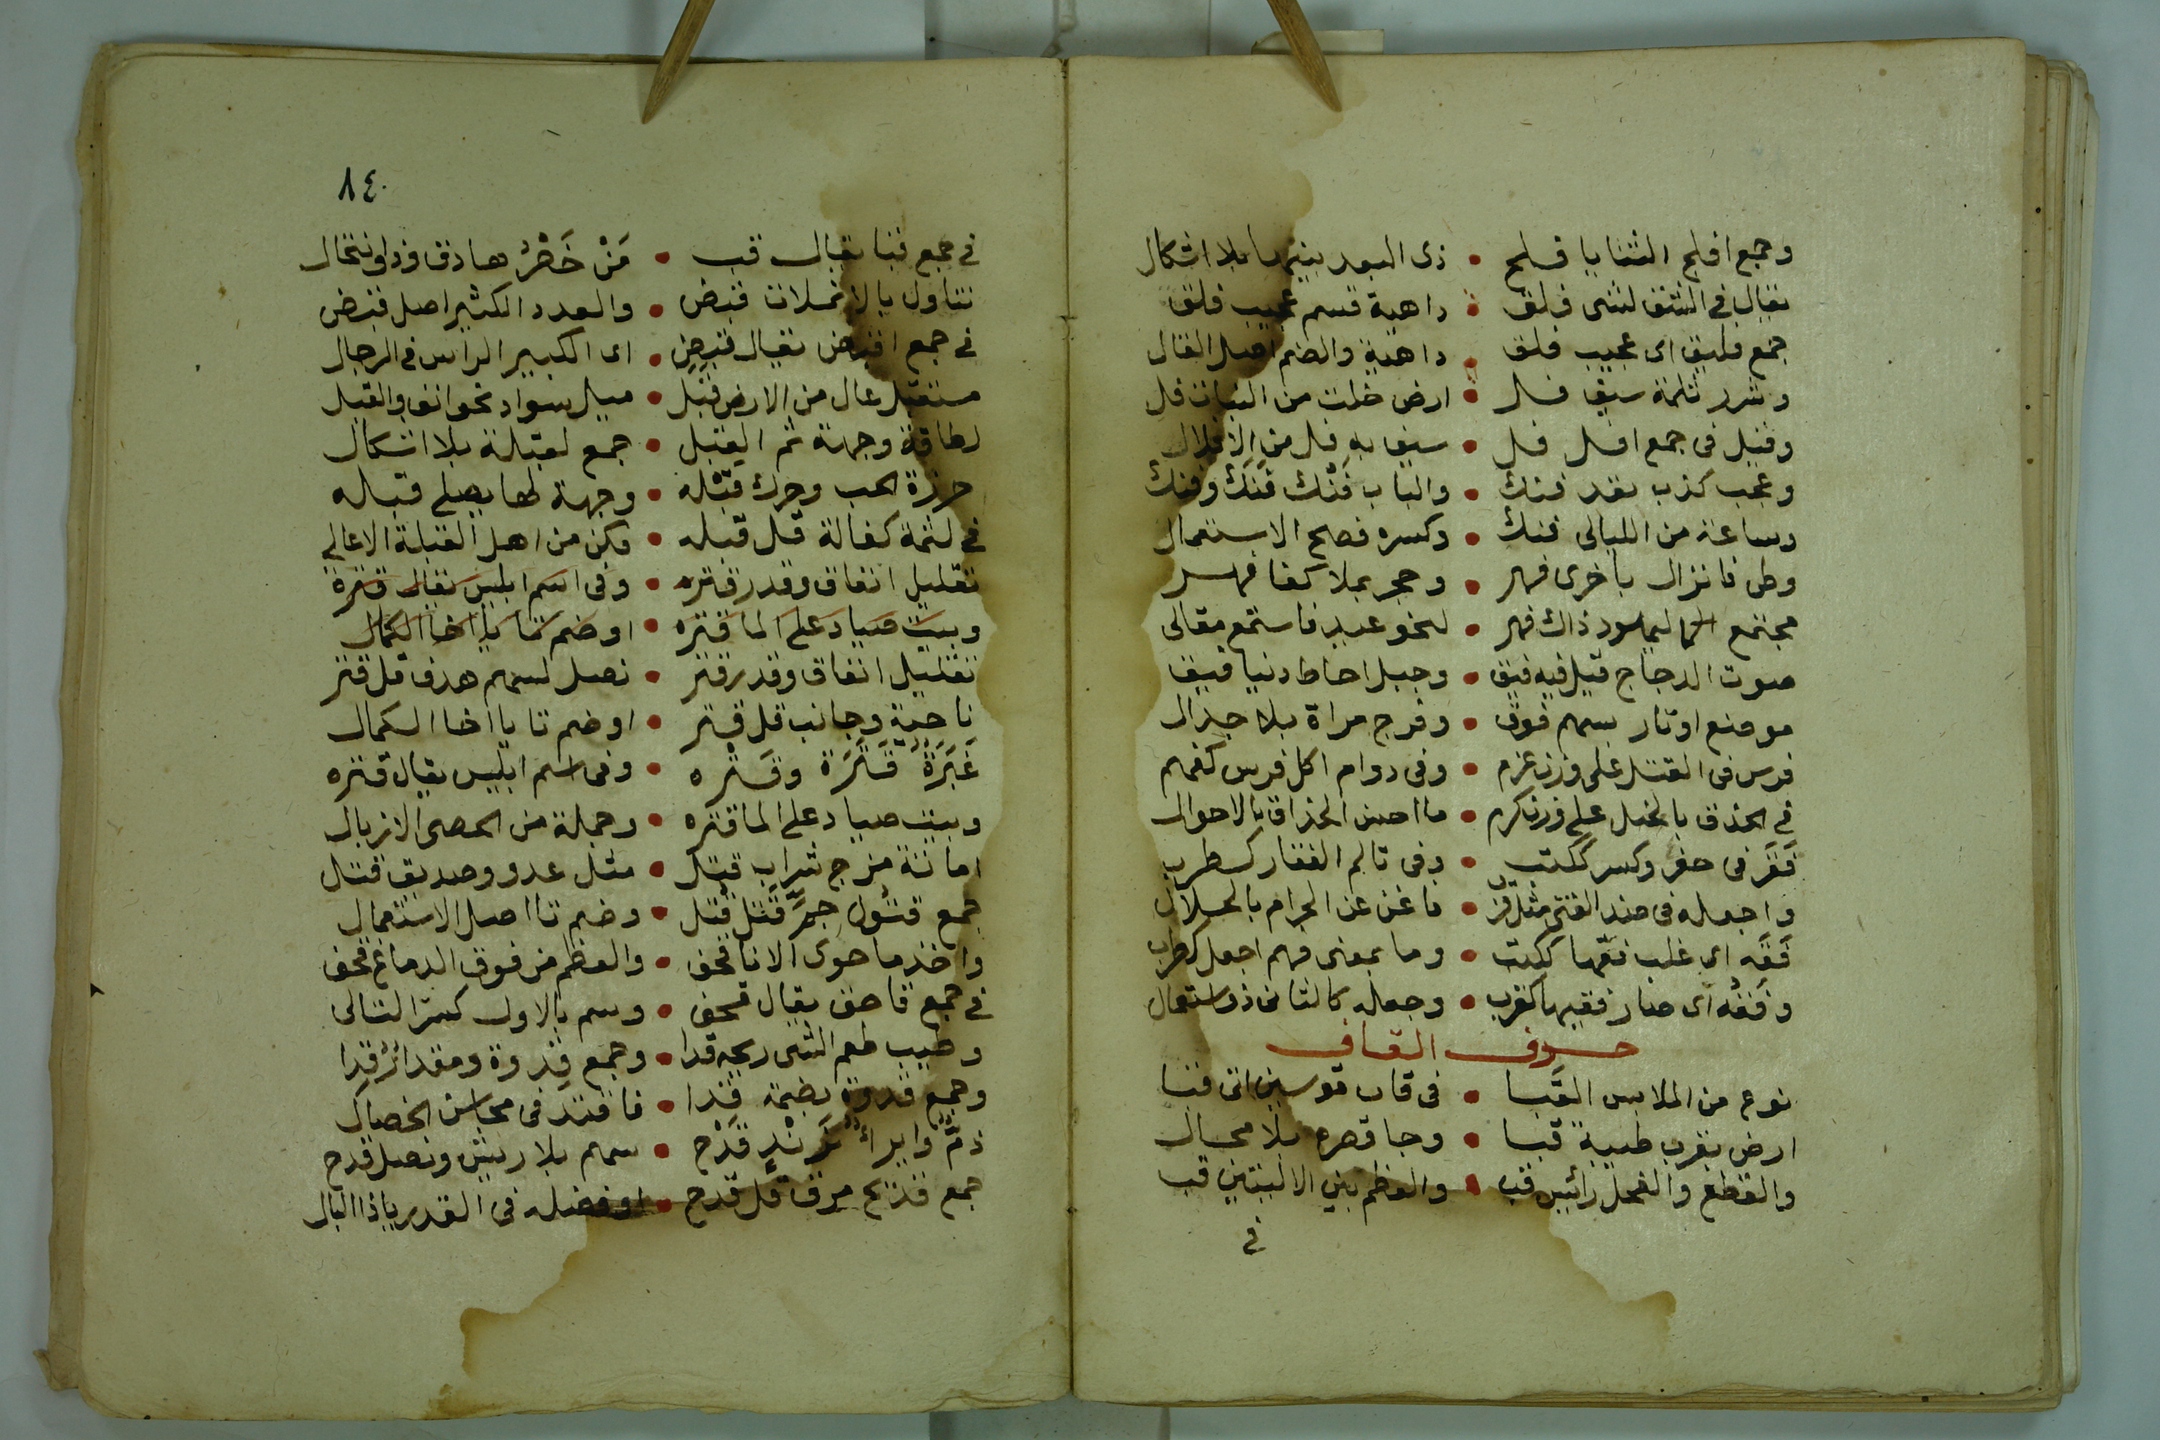 وجمع افلج الثنايا فلج • ذى البعد بينها بلا اشكال
يقال فى الشق لشى فلق • داهية قسم عجيب فلق
جمع فليق اى عجيب فلق • داهية والضم اصل القال
وشرر ثلمة سيف فل • ارض خلت من النبات فل
وقيل فى جمع افل فل • سيف به فل من الافلال
وعجب كذب بعد فنك • والباب فَنْك فَنَك وفنك
وساعة من الليالى فنك • وكسره فصح الاستعمال
وطى فانزال باخرى فهر • وحجر بملا كفا فهر
مجتمع اليهود ذاك فهر • لنحو عيد فاستمع مقالى
صوت الدجاج قيل فيه فيق • وجبل احاط دنيا فيق
موضع اوتار سهم فوق • وفرج مراة بلا جدال
فرس فى القتل على وزن عزم • وفى دوام اكل فرس كفهم
فى الحذق بالخيل على وزن كرم • ما احسن الحذاق بالاحوال
فَقَر فى حفر وكسر ككتب • وفى تالم الفقار كطرب
واجعله فى ضد الغنى مثل قرب • فاغن عن الحرام بالحلال
فَقَه اى غلب فقها ككتب • وما بمعنى فهم اجعل كطرب
وفَقُه اى صار فقيها كقرب • وجعله كالثانى ذو استعمال
حرف القاف
نوع من الملابس القَبا • فى قاب قوسين اتى قبا
ارض بقرب طيبة قبا • وجا قصره بلا محال
والقطع والفحل رائس قب • والعظم بين الاليتين قب
فى
٨٤
فى جمع قبا يقال قب • مَنْ خَصْرُ هاذق وذو انتحال
تناول بالانملات قبض • والعدد الكثير اصل قبض
فى جمع اقبض يقال قبض • اى الكبير الراس فى الرجال
مستقبل عال من الارض قبل • ميل سواد نحو انف والقبل
لطاقة وجهة ثم القبل • جمع لقبلة بلا اشكال
خرزة الحب وحرك قبله • وجهة لها يصلى قبله
فى لثمة كفالة قل قبله • وكن من اهل القبلة الاعالى
تقليل انفاق وقدر قتره • وفى اسم ابليس يقال قترة
وبيت صياد على الما قتره • او ضم تا يا اخا الكمال
تقليل انفاق وقدر قتر • نصل لسهم هدف قل قتر
ناحية وجانب قل قتر • او ضم تا يا اخا الكمال
غَبَرَةٌ قَتَرَة وقَتْره • وفى اسم ابليس يقال قتره
وبيت صياد على الما قتره • وجملة من الحصى الازبال
اماتة مزج شراب قتل • مثل عدو وصديق قتال
جمع قتول جرّ قتل قتل • وضم تا اصل الاستعمال
واخذ ما حوى الانا قحف • والعظم من فوق الدماغ قحف
فى جمع قاحف يقال قحف • وسم بالاول كسر التالى
وطيب طعم الشى ريحه قدا • وجمع قدوة ومقدارٌ قِدا
وجمع قدوة بضمة قُدا • فاقتد فى محاسن الخصال
ذمٌّ وايراء زند قدح • سهم بلا ريش ونصل قدح
جمع قديح مرق قل قدح • او فضله فى القدر ياذا البال